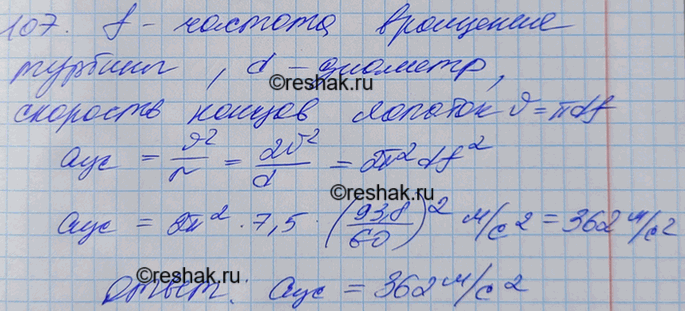 107. f - частота вращение
турбины, d - диаметр,
©reshak.ru
©reshak.ru
скорость концов лопаток υ = πdf
aцс = υ²/r = 2υ²/d = 2π²df²
©reshak.ru
aцс = 2π² · 7,5 · (93,8/60)² м/с² = 362 м/с²
©reshak.ru
Ответ: aцс = 362 м/с²